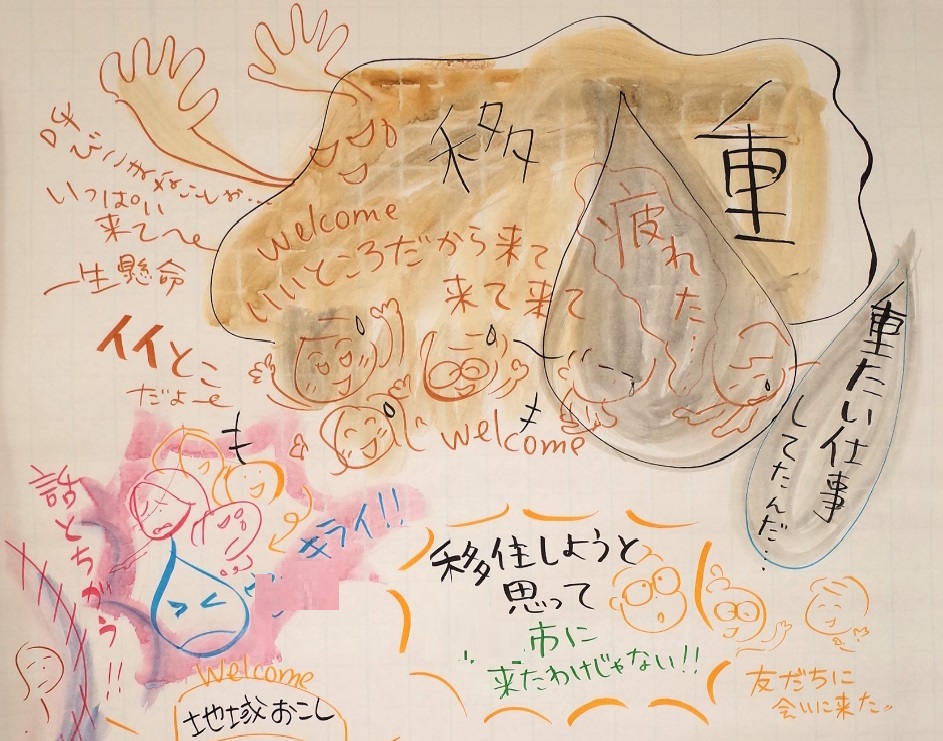 移
重
welcome
いいところだから来て
来て来て
疲れ
た…
いっぱい
来て〜
一生懸命
イイとこ
だよ〜
welcome
重たい仕事
してたんだ…
話とちがう!!
キライ!!
移住しようと
思って
市に
来たわけじゃない!!
友だちに
会いに来た
welcome
地域おこし